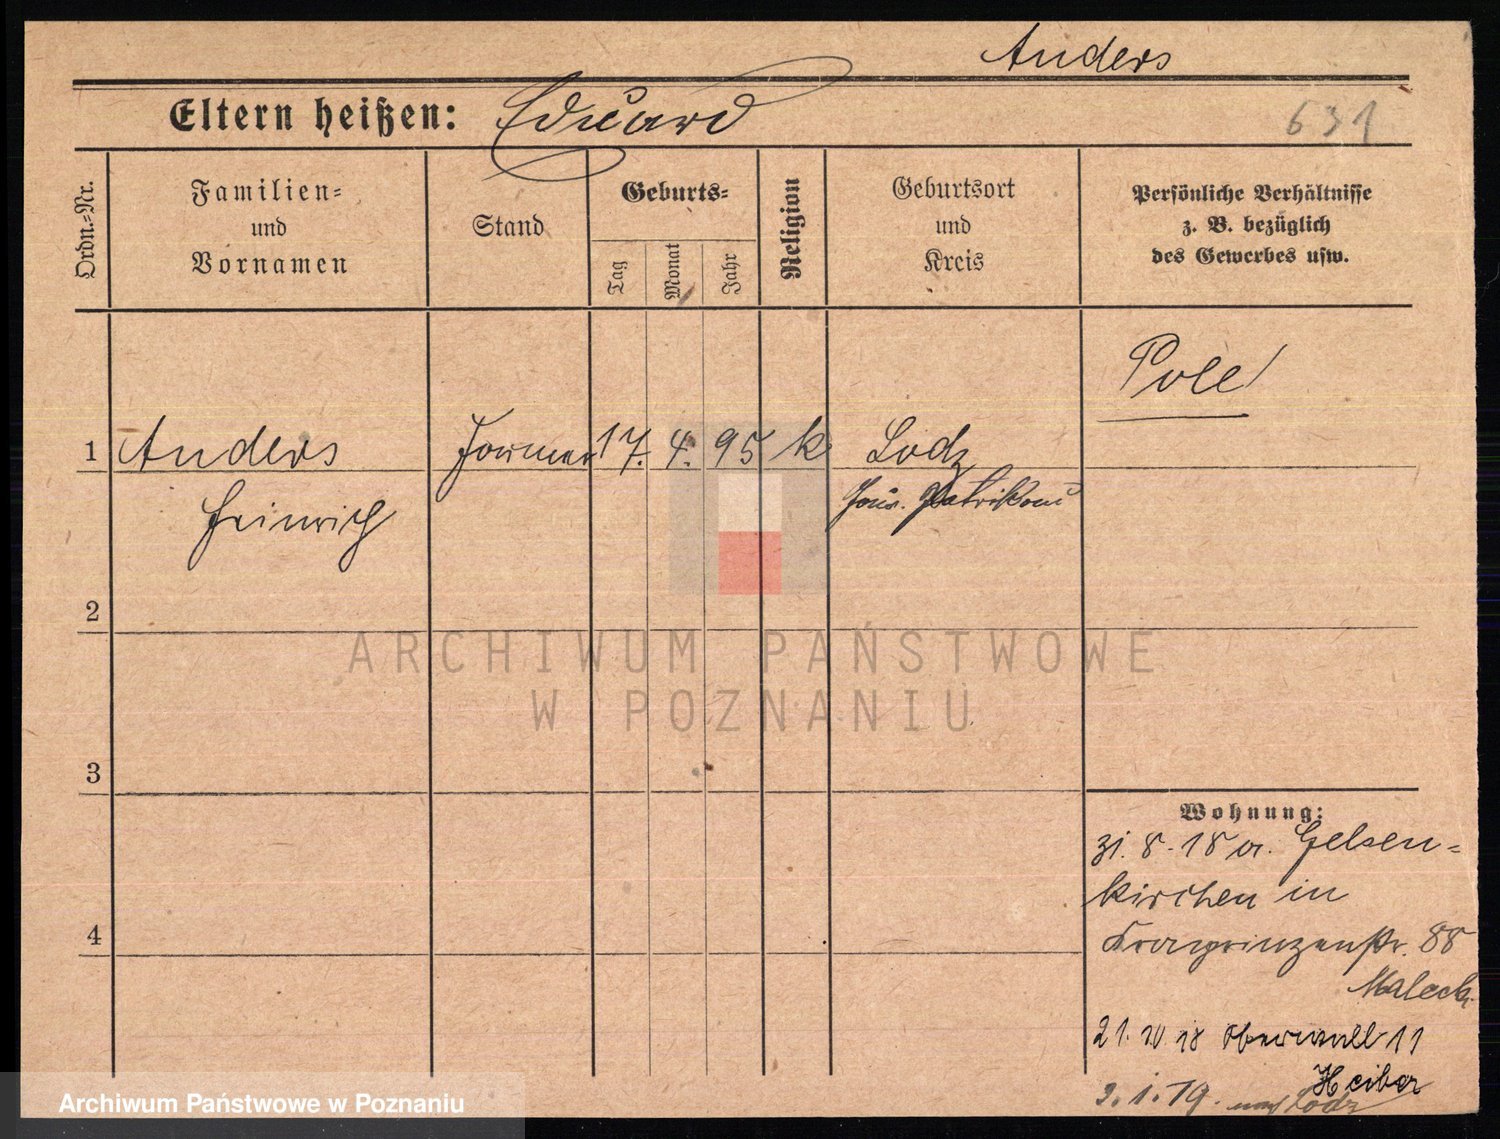 Anders
Eltern heißen: Eduard
631
Ordn.-Nr.
Familien-
und
Vornamen
Stand
Geburts-
Tag
Monat
Jahr
Religion
Geburtsort
und
Kreis
Persönliche Verhältnisse
z. B. bezüglich
des Gewerbes usw.
Pole
1 Anders Former 17. 4. 95 k Lodz
Heinrich
2
3
4
Wohnung:
31. 8. 18 a. Gelsen-
kirchen in
Kronprinzenstr. 88
Malecki
21. 10. 18 Oberwall 11
Heiber
3. 1. 19. nach Lodz
ARCHIWUM PAŃSTWOWE
W POZNANIU
Archiwum Państwowe w Poznaniu